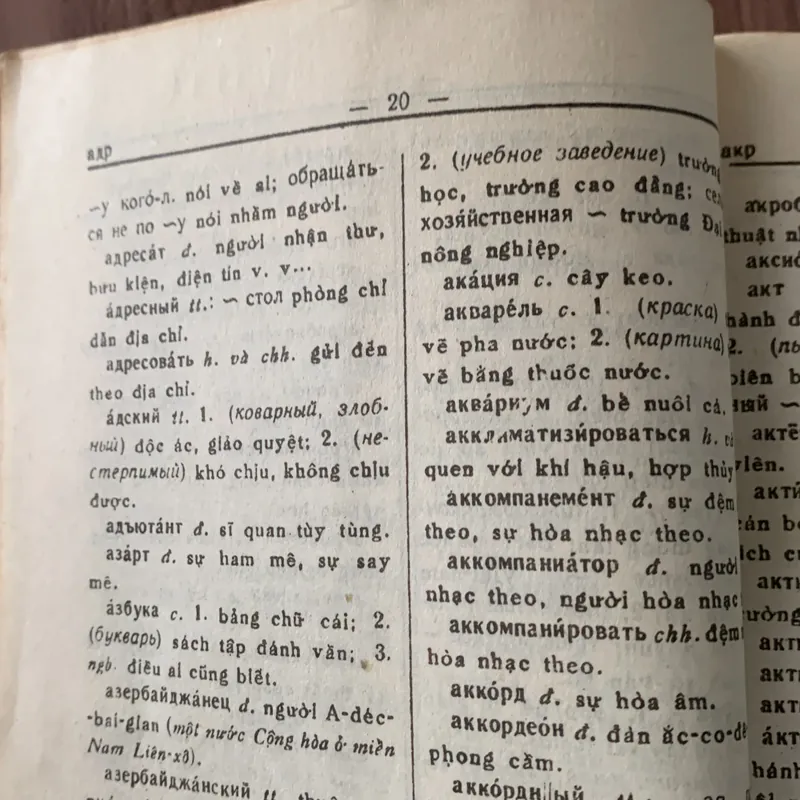 — 20 —
адр
∽у кого́-л. nói về ai; обраща́ть-
ся не по ∽у nói nhầm người.
адреса́т đ. người nhận thư,
bưu kiện, điện tín v. v...
а́дресный tt.: ∽ стол phòng chỉ
dẫn địa chỉ.
адресова́ть h. và chh. gửi đến
theo địa chỉ.
а́дский tt. 1. (коварный, злоб-
ный) độc ác, giảo quyệt; 2. (не-
стерпимый) khó chịu, không chịu
được.
адъюта́нт đ. sĩ quan tùy tùng.
аза́рт đ. sự ham mê, sự say
mê.
а́збука c. 1. bảng chữ cái; 2.
(букварь) sách tập đánh vần; 3.
ngb. điều ai cũng biết.
азербайджа́нец đ. người A-déc-
-bai-gian (một nước Cộng hòa ở miền
Nam Liên-xô).
азербайджа́нский tt.
2. (учебное заведение) trường
học, trường cao đẳng;
хозя́йственная ∽ trường Đại
nông nghiệp.
ака́ция c. cây keo.
акваре́ль c. 1. (краска)
vẽ pha nước; 2. (картина)
vẽ bằng thuốc nước.
аква́риум đ. bể nuôi cá.
акклиматизи́роваться h.
quen với khí hậu, hợp thủy
аккомпанеме́нт đ. sự đệm
theo, sự hòa nhạc theo.
аккомпаниа́тор đ. người
nhạc theo, người hòa nhạc
аккомпани́ровать chh. đệm
hòa nhạc theo.
акко́рд đ. sự hòa âm.
аккордео́н đ. đàn ắc-co-đê
phong cầm.
акко́рдный
акр
акроб
thuật
аксио
акт
hành
2.
biên
∽
актё
viên.
акти́
cán
акти
акт
акт
акт
а́кт
hành